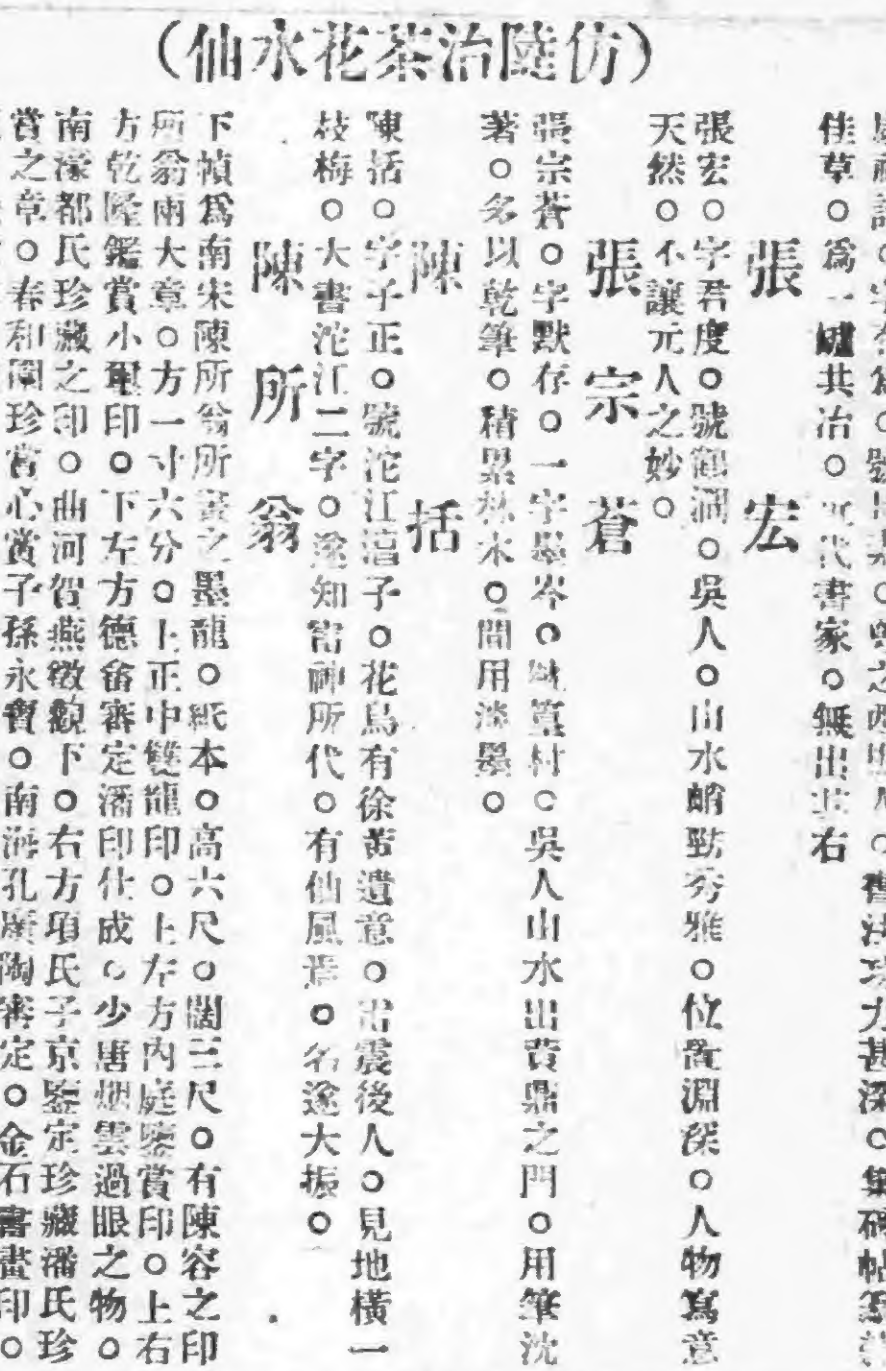 (仿陸治茶花水仙)
佳草。爲一爐共冶。近代書家。無出其右
張宏
張宏。字君度。號鶴澗。吳人。山水峭勁秀雅。位置淵深。人物寫意
天然。不讓元人之妙。
張宗蒼
張宗蒼。字默存。一字墨岑。號篁村。吳人山水出黃鼎之門。用筆沈
著。多以乾筆。積累林木。間用淡墨。
陳括
陳括。字子正。號沱江漁子。花鳥有徐黃遺意。雷震後人。見地橫一
枝梅。大書沱江二字。遂知雷神所代。有仙風焉。名遂大振。
陳所翁
下幀爲南宋陳所翁所畫之墨龍。紙本。高六尺。闊三尺。有陳容之印
所翁兩大章。方一寸六分。上正中雙龍印。上左方內庭鑒賞印。上右
方乾隆鑑賞小璽印。下左方德畬審定潘印仕成。少唐烟雲過眼之物。
南濠都氏珍藏之印。曲河賀燕徵觀下。右方項氏子京鑒定珍藏潘氏珍
賞之章。春和園珍賞心賞子孫永寶。南海孔廣陶審定。金石書畫印。